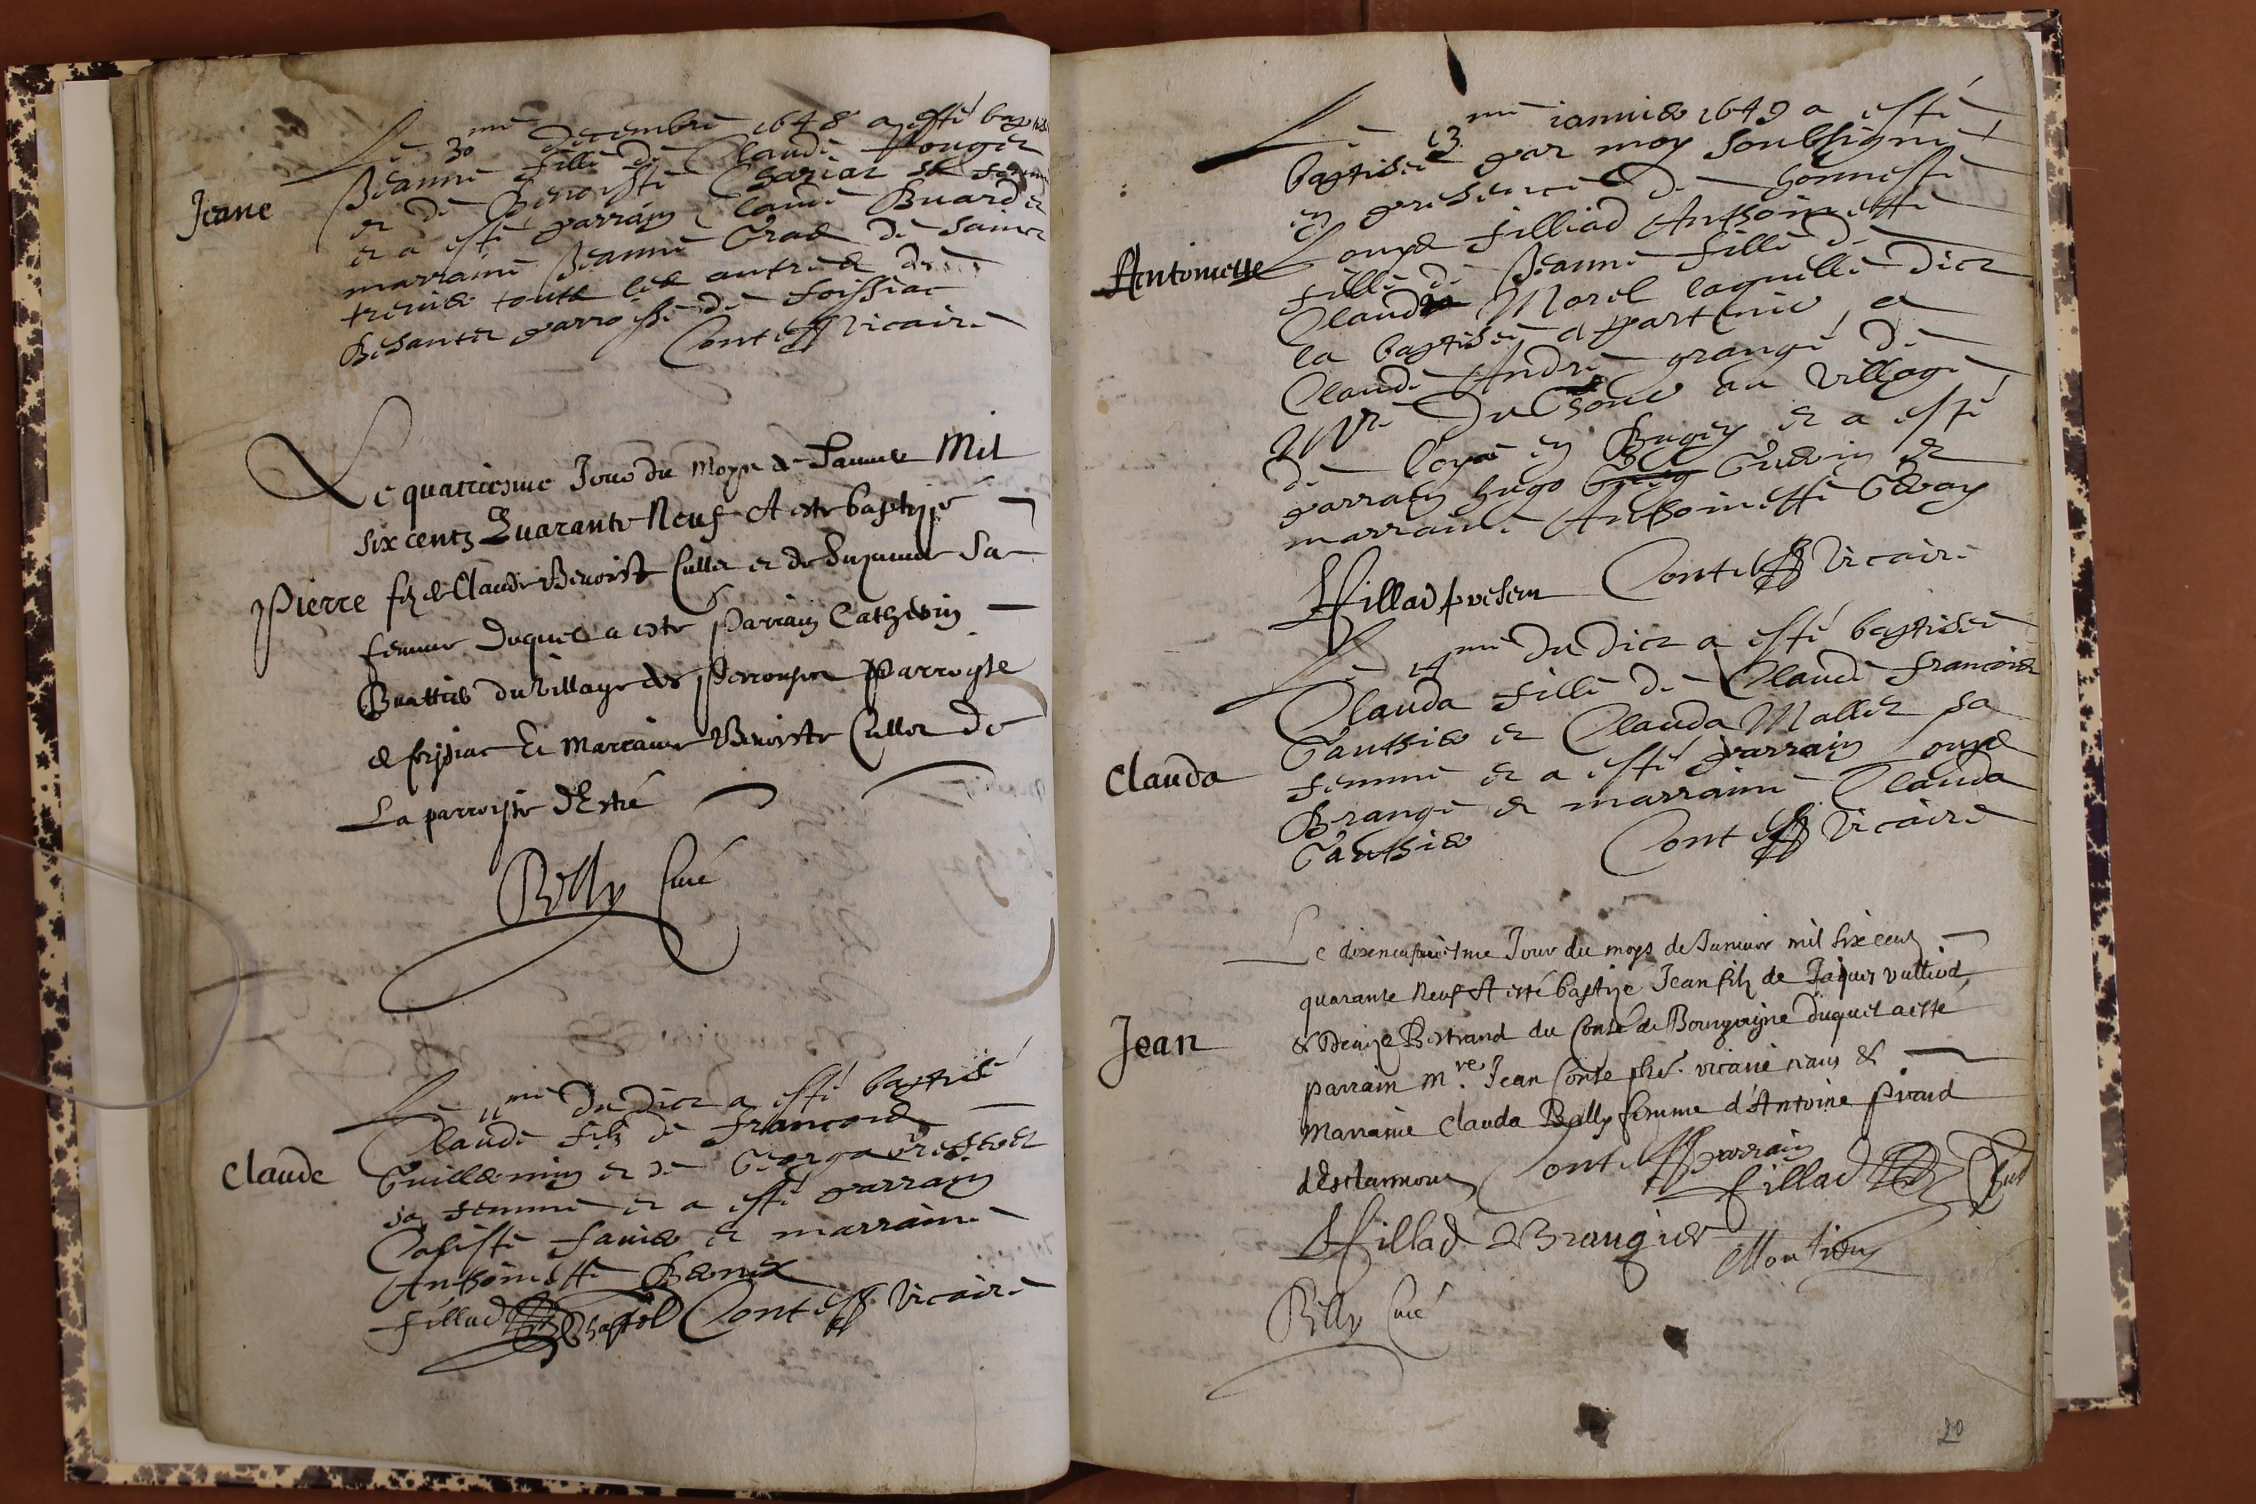 Le 30me decembre 1648 a esté baptisé
Jeane
Jeanne fille de Claude Pouget
et de Benoiste Chariat sa femme
et a esté parrain Claude Buard et
marraine Jeanne Gras de Sainct
toutz les autres de
parroisse de foissiac
Conte Vicaire
Le quatriesme Jour du Moys de Janvier Mil
six centz Quarante Neuf A esté baptizé
Pierre filz de Claude Benoist Cullet et de Suzanne Sa
femme Duquel a esté Parrain Catherin
Buattier du Village des Perrouses Parroysse
de foyssiac Et Marraine Benoiste Cullet De
La parroysse d'Estré
Billy Curé
Le 11me du dict a esté baptisé
Claude
Claude filz de francois
Guillemin et de Georga
sa femme et a esté parrain
Caliste favier et marraine
Anthoinette
fillad Chastel Conte Vicaire
Le 13me janvier 1649 a esté
baptisée par moy soubsigné
en presence de honneste
Antoinette
Louys filliad Anthoinette
fille de Jeanne fille de
Claude Morel laquelle dict
la baptisée apartenir a
Claude André grangé de
Mre Du au village
de loye en Bugey et a esté
parrain hugo Guerin et
marraine Anthoinette
fillad present Conte Vicaire
Le 14me du dict a esté baptisée
Clauda fille de Claude francois
Gauthier et Clauda Mallet sa
Clauda
femme et a esté parrain Louys
Brangé et marraine Clauda
Gauthier Conte Vicaire
Le dixneufviesme Jour du moys de Janvier mil six centz
quarante neuf A esté baptizé Jean filz de Jaques vulliod
Jean
& Denize Bertrand du Conté de Bourgogne duquel a esté
parrain Mre Jean Conte pbre vicaire &
Marraine Clauda Billy femme d'Antoine Piraud
Conte parrain
fillad
fillad Brangier Montieux
Billy Curé
20